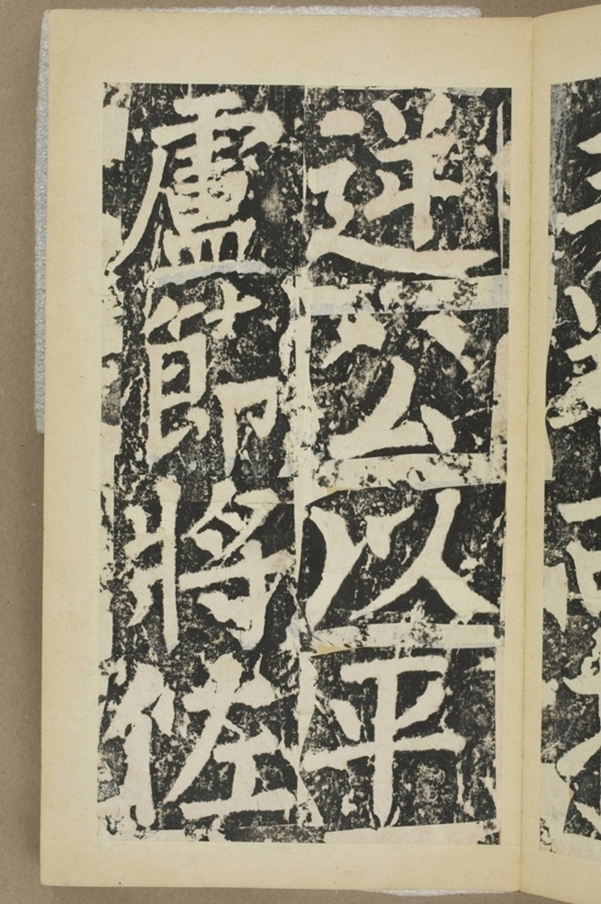 逆公以平
盧節將佐